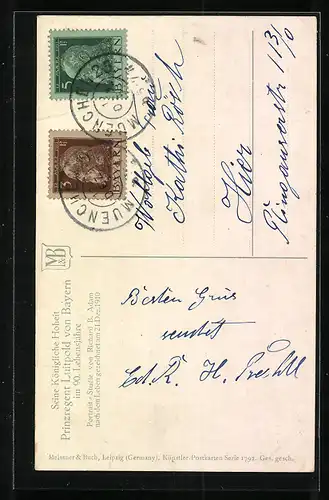 5 Pf
BAYERN
3 Pf
BAYERN
MUENCHEN
MUENCHEN
Kathi Rösch
Hier
Plinganserstr 113/0
M&B
Seine Königliche Hoheit
Prinzregent Luitpold von Bayern
im 90. Lebensjahre
Porträt-Studie von Richard B. Adam
nach dem Leben gezeichnet am 21. Dez. 1910
Besten Grus
sendet
H. Prechtl
Meissner & Buch, Leipzig (Germany). Künstler-Postkarten Serie 1792. Ges. gesch.